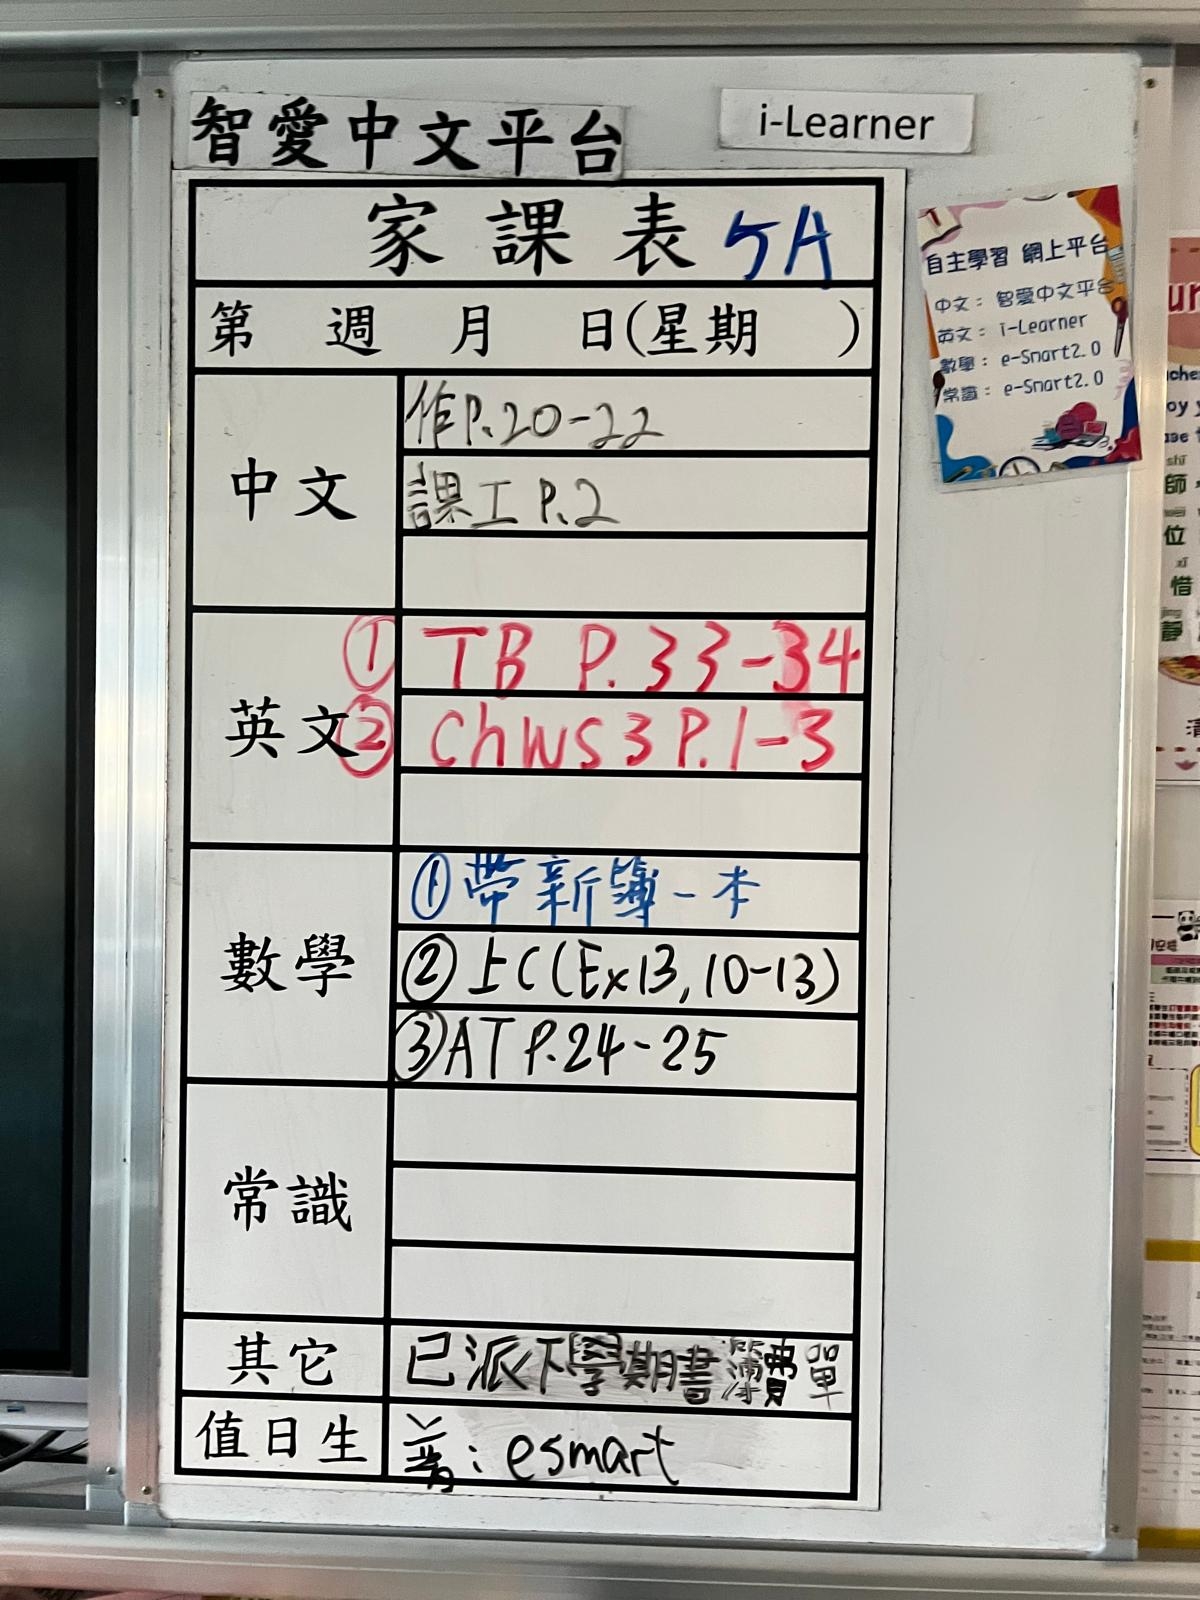 智愛中文平台
i-Learner
家課表 5A
第 週 月 日(星期 )
中文
作P.20-22
課工 P.2
英文
① TB P.33-34
② ChWS3 P.1-3
數學
①帶新簿一本
②上C(Ex13,10-13)
③AT P.24-25
常識
其它
已派下學期書簿費單
值日生
普: esmart
自主學習 網上平台
中文: 智愛中文平台
英文: i-Learner
數學: e-Smart2.0
常識: e-Smart2.0
shī
師
位
xī
惜
jìng
靜
清